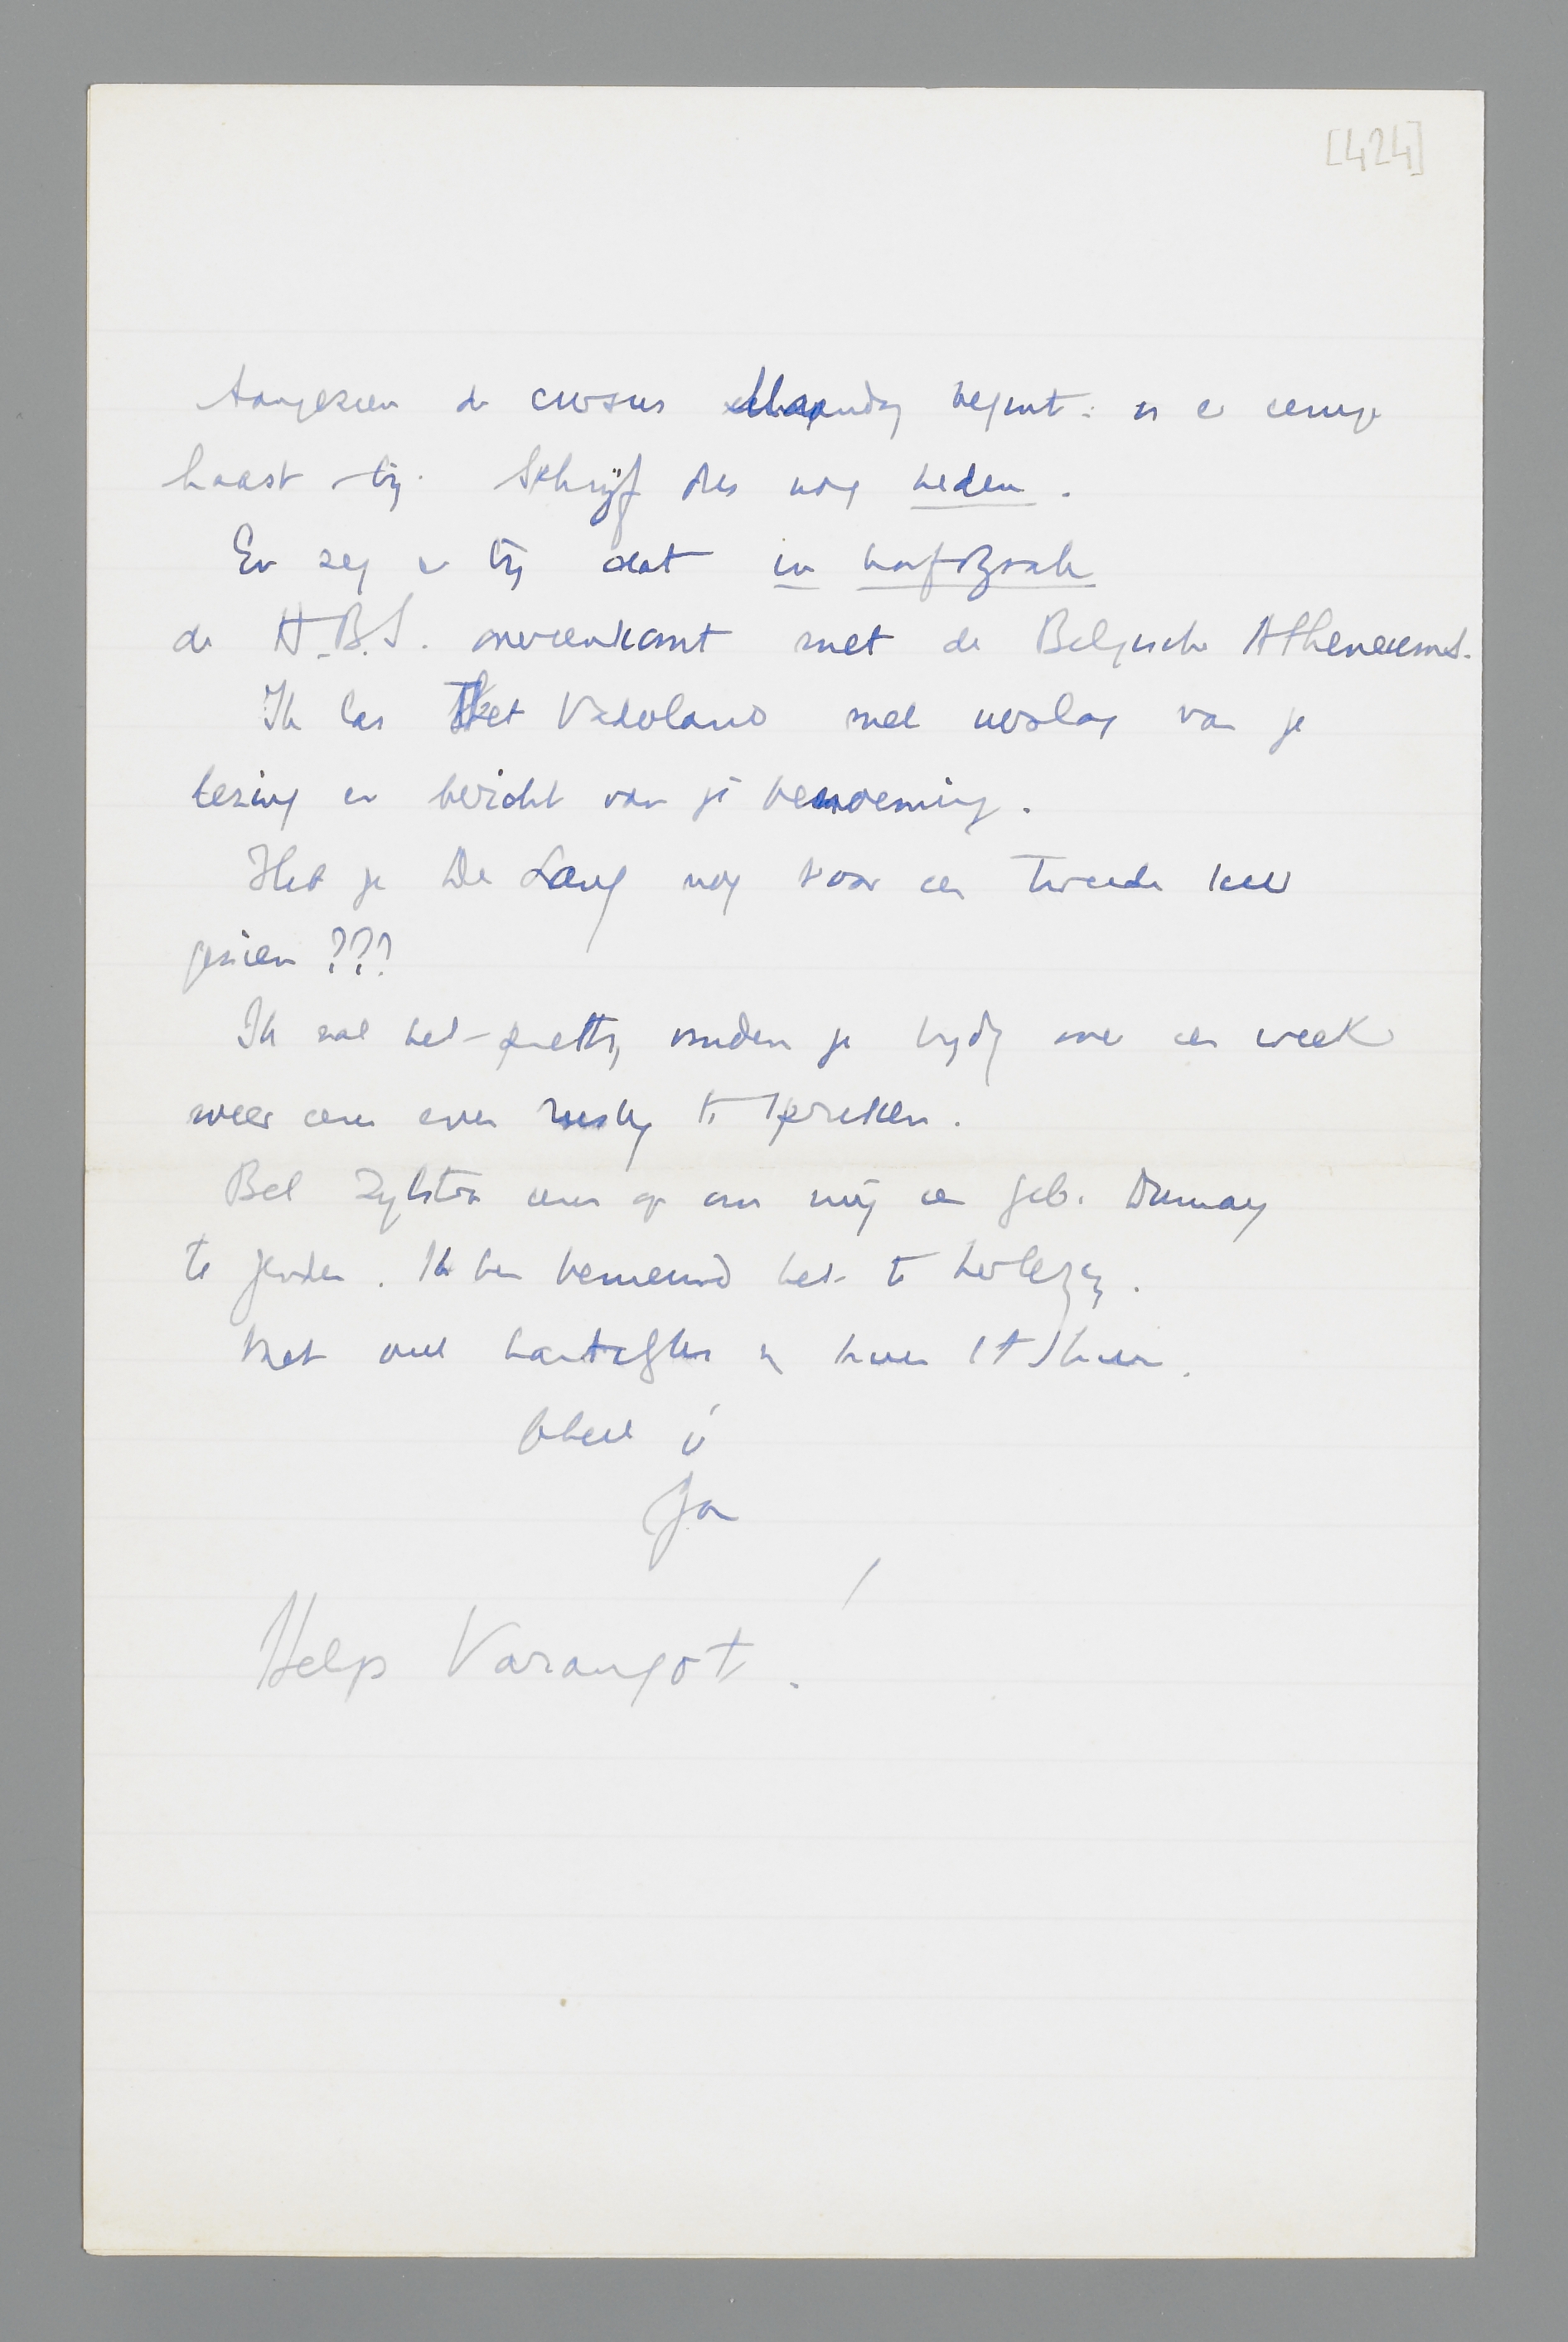 [424]
Aangezien de cursus Maandag begint: is er eenige
haast bij. Schrijf dus nog heden.
En zeg er bij dat in hoofdzaak
de H.B.S. overeenkomt met de Belgische Atheneums.
Ik las Het Vaderland met verslag van je
lezing en bericht van je benoeming.
Heb je De Lang nog voor een tweede keer
gezien ???
Ik zal het prettig vinden je vrijdag over een week
weer eens even rustig te spreken.
Bel Zijlstra eens op om mij een geb. Dumay
te zenden. Ik ben benieuwd het te herlezen.
Met veel hartelijks v. huis tot huis.
geheel je
Jan
Help Varangot!